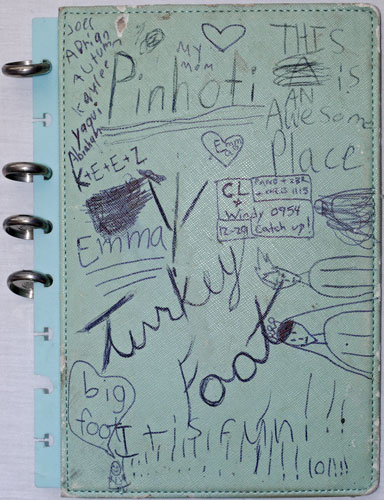 Joel
Adrian
Autumn
Kaylee
Yaqui
Abraham
K+E+E+Z
My
Mom
Pinhoti
THIS
A IS
AN
AWesome
Place
Emma
CL
+
Windy 0954
12-29 Catch up!
Emma
Turkey
Foot
big
foot
It is fun!!!
10!!!